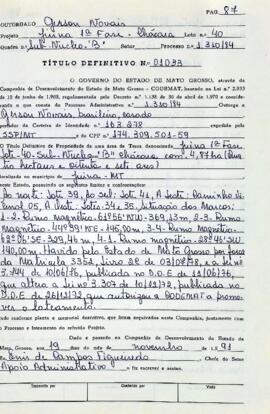 PAG. 87
OUTORGADO Gerson Novais
Projeto Juina 1ª Fase - Chácara Lote n.º 40
Quadra n.º Sub. Núcleo "B" Setor Processo n.º 1.310/84
TÍTULO DEFINITIVO N.º 01033
O GOVERNO DO ESTADO DE MATO GROSSO, através da
Companhia de Desenvolvimento do Estado de Mato Grosso - CODEMAT, baseado na Lei n.º
de junho de regulamentada pelo Decreto n.º 1.138 de 30 de abril de 1970 e considerando
o que consta do Processo Administrativo n.º 1.310/84 Outorga a
Gerson Novais, brasileiro, casado
portador da Carteira de Identidade n.º
SSP/MT e do CPF n.º 174.309.501-59
O Título Definitivo de Propriedade de uma área de Terra denominada Juina 1ª Fase
Lote-40-Sub-Núcleo-"B" Chácara, com 4,87ha (Quatro
hectares e oitenta e sete ares)
município de Juina - MT
neste Estado, possuindo os seguintes limites e confrontações:
Ao norte: Lote 39, Ao sul: Lote 41, A leste: Caminho Vicinal
05, A Oeste: Lote-34 e 35, Situação dos Marcos:
1-2. Rumo magnético: 61º56'NW-369,13m, 2-3. Rumo
Magnético: 44º39'NE-145,00m, 3-4. Rumo magnético
62º06'SE-329,46m, 4-1. Rumo magnético-28º46'SW
140,00m. Havido pelo Estado de Mato Grosso por força
da Matrícula 3352, Livro 2E de 03/08/78, e a Lei nº
3.744 de 10/06/76, publicada no D.O.E de 12/06/76,
que altera a Lei nº 3.307 de 18/12/72, publicada no
D.O.E de 26/12/72, que autorizou a CODEMAT a promover
o Loteamento.
tudo conforme planta e memorial descritivo, que foram arquivados nesta Companhia, juntamente com
o Processo e Internamento do referido Projeto.
Dado e passado na Companhia de Desenvolvimento do Estado de
Mato Grosso, aos 19 dias do mês de novembro de 19 91
Eu, de Campos Figueiredo Chefe do Setor
Apoio Administrativo fiz escrever e assino.
Transcrito por